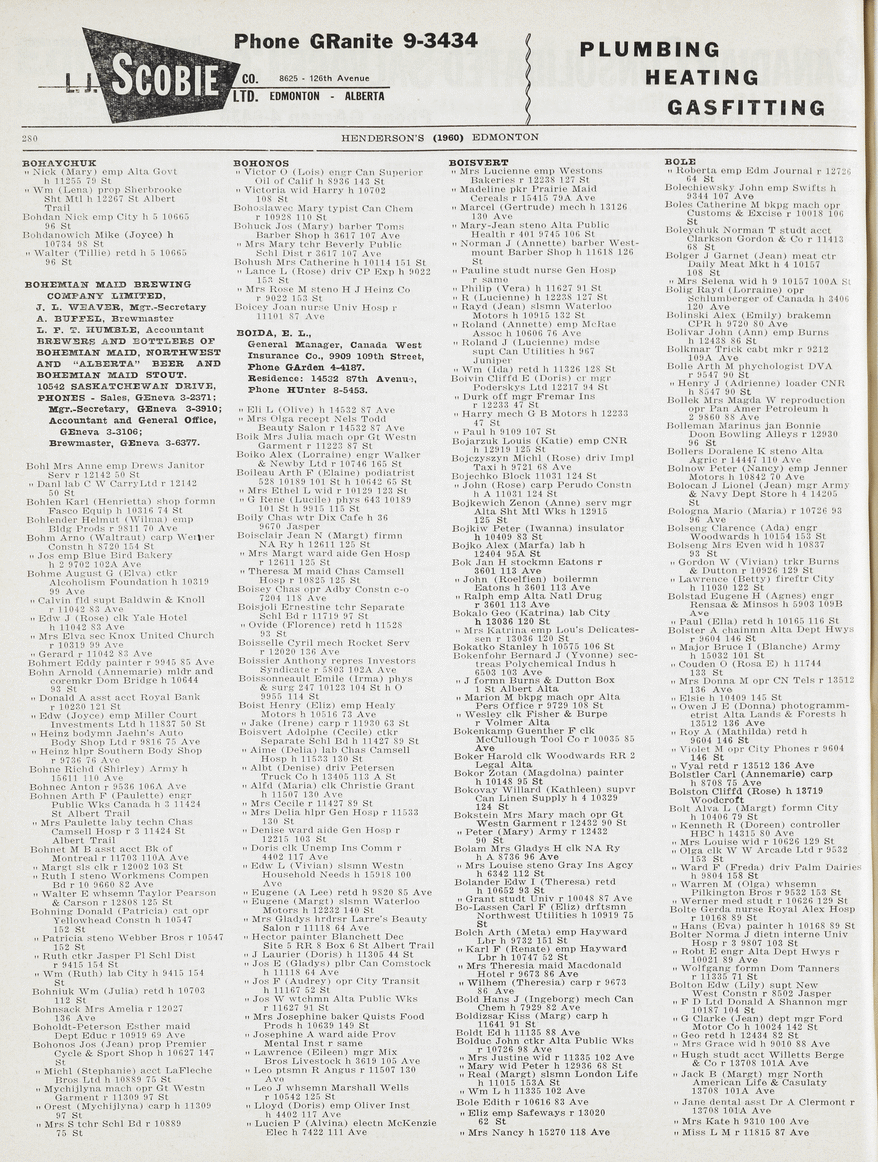 L. J. SCOBIE CO. LTD.
Phone GRanite 9-3434
8625 - 126th Avenue
EDMONTON - ALBERTA
PLUMBING
HEATING
GASFITTING
280
HENDERSON'S (1960) EDMONTON
BOHAYCHUK
" Nick (Mary) emp Alta Govt
h 11255 79 St
" Wm (Lena) prop Sherbrooke
Sht Mtl h 12267 St Albert
Trail
Bohdan Nick emp City h 5 10665
96 St
Bohdanowich Mike (Joyce) h
10734 98 St
" Walter (Tillie) retd h 5 10665
96 St
BOHEMIAN MAID BREWING
COMPANY LIMITED,
J. L. WEAVER, Mgr.-Secretary
A. BUFFEL, Brewmaster
L. F. T. HUMBLE, Accountant
BREWERS AND BOTTLERS OF
BOHEMIAN MAID, NORTHWEST
AND "ALBERTA" BEER AND
BOHEMIAN MAID STOUT.
10542 SASKATCHEWAN DRIVE,
PHONES - Sales, GEneva 3-2371;
Mgr.-Secretary, GEneva 3-3910;
Accountant and General Office,
GEneva 3-3106;
Brewmaster, GEneva 3-6377.
Bohl Mrs Anne emp Drews Janitor
Serv r 12142 50 St
" Danl lab C W CarryLtd r 12142
50 St
Bohlen Karl (Henrietta) shop formn
Fasco Equip h 10316 74 St
Bohlender Helmut (Wilma) emp
Bldg Prods r 9811 70 Ave
Bohm Arno (Waltraut) carp Werner
Constn h 8720 154 St
" Jos emp Blue Bird Bakery
h 2 9702 102A Ave
Bohme August G (Elva) ctkr
Alcoholism Foundation h 10319
99 Ave
" Calvin fld supt Baldwin & Knoll
r 11042 83 Ave
" Edw J (Rose) clk Yale Hotel
h 11042 83 Ave
" Mrs Elva sec Knox United Church
r 10319 99 Ave
" Gerard r 11042 83 Ave
Bohmert Eddy painter r 9945 85 Ave
Bohn Arnold (Annemarie) mldr and
coremkr Dom Bridge h 10644
93 St
" Donald A asst acct Royal Bank
r 10230 121 St
" Edw (Joyce) emp Miller Court
Investments Ltd h 11837 50 St
" Heinz bodymn Jaehn's Auto
Body Shop Ltd r 9816 75 Ave
" Heinz hlpr Southern Body Shop
r 9736 76 Ave
Bohne Richd (Shirley) Army h
15611 110 Ave
Bohnec Anton r 9536 106A Ave
Bohnen Arth F (Paulette) engr
Public Wks Canada h 3 11424
St Albert Trail
" Mrs Paulette laby techn Chas
Camsell Hosp r 3 11424 St
Albert Trail
Bohnet M B asst acct Bk of
Montreal r 11703 110A Ave
" Margt sls clk r 12002 103 St
" Ruth I steno Workmens Compen
Bd r 10 9660 82 Ave
" Walter E whsemn Taylor Pearson
& Carson r 12808 125 St
Bohning Donald (Patricia) cat opr
Yellowhead Constn h 10547
152 St
" Patricia steno Webber Bros r 10547
152 St
" Ruth ctkr Jasper Pl Schl Dist
r 9415 154 St
" Wm (Ruth) lab City h 9415 154
St
Bohniuk Wm (Julia) retd h 10703
112 St
Bohnsack Mrs Amelia r 12027
136 Ave
Boholdt-Peterson Esther maid
Dept Educ r 10919 69 Ave
Bohonos Jos (Jean) prop Premier
Cycle & Sport Shop h 10627 147
St
" Michl (Stephanie) acct LaFleche
Bros Ltd h 10889 75 St
" Mychijlyna mach opr Gt Westn
Garment r 11309 97 St
" Orest (Mychijlyna) carp h 11309
97 St
" Mrs S tchr Schl Bd r 10889
75 St
BOHONOS
" Victor O (Lois) engr Can Superior
Oil of Calif h 8936 143 St
" Victoria wid Harry h 10702
108 St
Bohoslawec Mary typist Can Chem
r 10928 110 St
Bohuck Jos (Mary) barber Toms
Barber Shop h 3617 107 Ave
" Mrs Mary tchr Beverly Public
Schl Dist r 3617 107 Ave
Bohush Mrs Catherine h 10114 151 St
" Lance L (Rose) driv CP Exp h 9022
153 St
" Mrs Rose M steno H J Heinz Co
r 9022 153 St
Boicey Joan nurse Univ Hosp r
11101 87 Ave
BOIDA, E. L.,
General Manager, Canada West
Insurance Co., 9909 109th Street,
Phone GArden 4-4187.
Residence: 14532 87th Avenue,
Phone HUnter 8-5453.
" Eli L (Olive) h 14532 87 Ave
" Mrs Olga recept Nels Todd
Beauty Salon r 14532 87 Ave
Boik Mrs Julia mach opr Gt Westn
Garment r 11223 87 St
Boiko Alex (Lorraine) engr Walker
& Newby Ltd r 10746 165 St
Boileau Arth F (Elaine) podiatrist
528 10189 101 St h 10642 65 St
" Mrs Ethel L wid r 10129 123 St
" G Rene (Lucile) phys 643 10189
101 St h 9915 115 St
Boily Chas wtr Dix Cafe h 36
9670 Jasper
Boisclair Jean N (Margt) firmn
NA Ry h 12611 125 St
" Mrs Margt ward aide Gen Hosp
r 12611 125 St
" Theresa M maid Chas Camsell
Hosp r 10825 125 St
Boisey Chas opr Adby Constn c-o
7204 118 Ave
Boisjoli Ernestine tchr Separate
Schl Bd r 11719 97 St
" Ovide (Florence) retd h 11528
93 St
Boisselle Cyril mech Rocket Serv
r 12020 136 Ave
Boissier Anthony repres Investors
Syndicate r 5803 102A Ave
Boissonneault Emile (Irma) phys
& surg 247 10123 104 St h O
9955 114 St
Boist Henry (Eliz) emp Healy
Motors h 10516 73 Ave
" Jake (Irene) carp r 11930 63 St
Boisvert Adolphe (Cecile) ctkr
Separate Schl Bd h 11427 89 St
" Aime (Delia) lab Chas Camsell
Hosp h 11533 130 St
" Albt (Denise) driv Petersen
Truck Co h 13405 113 A St
" Alfd (Maria) clk Christie Grant
h 11507 130 Ave
" Mrs Cecile r 11427 89 St
" Mrs Delia hlpr Gen Hosp r 11533
130 St
" Denise ward aide Gen Hosp r
12215 103 St
" Doris clk Unemp Ins Comm r
4402 117 Ave
" Edw L (Vivian) slsmn Westn
Household Needs h 15918 100
Ave
" Eugene (A Lee) retd h 9820 85 Ave
" Eugene (Margt) slsmn Waterloo
Motors h 12232 140 St
" Mrs Gladys hrdrsr Larre's Beauty
Salon r 11118 64 Ave
" Hector painter Blanchett Dec
Site 5 RR 8 Box 6 St Albert Trail
" J Laurier (Doris) h 11305 44 St
" Jos E (Gladys) plbr Can Comstock
h 11118 64 Ave
" Jos F (Audrey) opr City Transit
h 11167 52 St
" Jos W wtchmn Alta Public Wks
r 11627 91 St
" Mrs Josephine baker Quists Food
Prods h 10639 149 St
" Josephine A ward aide Prov
Mental Inst r same
" Lawrence (Eileen) mgr Mix
Bros Livestock h 3619 105 Ave
" Leo ptsmn R Angus r 11507 130
Ave
" Leo J whsemn Marshall Wells
r 10542 125 St
" Lloyd (Doris) emp Oliver Inst
h 4402 117 Ave
" Lucien P (Alvina) electn McKenzie
Elec h 7422 111 Ave
BOISVERT
" Mrs Lucienne emp Westons
Bakeries r 12238 127 St
" Madeline pkr Prairie Maid
Cereals r 15415 79A Ave
" Marcel (Gertrude) mech h 13126
130 Ave
" Mary-Jean steno Alta Public
Health r 401 9745 106 St
" Norman J (Annette) barber West-
mount Barber Shop h 11618 126
St
" Pauline studt nurse Gen Hosp
r same
" Philip (Vera) h 11627 91 St
" R (Lucienne) h 12238 127 St
" Rayd (Jean) slsmn Waterloo
Motors h 10915 132 St
" Roland (Annette) emp McRae
Assoc h 10606 76 Ave
" Roland J (Lucienne) mdse
supt Can Utilities h 967
Juniper
" Wm (Ida) retd h 11326 128 St
Boivin Cliffd E (Doris) cr mgr
Poderskys Ltd 12217 94 St
" Durk off mgr Fremar Ins
r 12233 47 St
" Harry mech G B Motors h 12233
47 St
" Paul h 9109 107 St
Bojarzuk Louis (Katie) emp CNR
h 12919 125 St
Bojczyszyn Michl (Rose) driv Impl
Taxi h 9721 68 Ave
Bojechko Block 11031 124 St
" John (Rose) carp Perudo Constn
h A 11031 124 St
Bojkewich Zenon (Anne) serv mgr
Alta Sht Mtl Wks h 12915
125 St
Bojkiw Peter (Iwanna) insulator
h 10409 83 St
Bojko Alex (Marfa) lab h
12404 95A St
Bok Jan H stockmn Eatons r
3601 113 Ave
" John (Roelfien) boilermn
Eatons h 3601 113 Ave
" Ralph emp Alta Natl Drug
r 3601 113 Ave
Bokalo Geo (Katrina) lab City
h 13036 120 St
" Mrs Katrina emp Lou's Delicates-
sen r 13036 120 St
Bokatko Stanley h 10575 106 St
Bokenfohr Bernard J (Yvonne) sec-
treas Polychemical Indus h
6503 103 Ave
" J formn Burns & Dutton Box
1 St Albert Alta
" Marion M bkpg mach opr Alta
Pers Office r 9729 108 St
" Wesley clk Fisher & Burpe
r Volmer Alta
Bokenkamp Guenther F clk
McCullough Tool Co r 10035 85
Ave
Boker Harold clk Woodwards RR 2
Legal Alta
Bokor Zotan (Magdolna) painter
h 10148 95 St
Bokovay Willard (Kathleen) supvr
Can Linen Supply h 4 10329
124 St
Bokstein Mrs Mary mach opr Gt
Westn Garment r 12432 90 St
" Peter (Mary) Army r 12432
90 St
Bolam Mrs Gladys H clk NA Ry
h A 8736 96 Ave
" Mrs Louise steno Gray Ins Agcy
h 6342 112 St
Bolander Edw I (Theresa) retd
h 10652 93 St
" Grant studt Univ r 10048 87 Ave
Bo-Lassen Carl F (Eliz) drftsmn
Northwest Utilities h 10919 75
St
Bolch Arth (Meta) emp Hayward
Lbr h 9732 151 St
" Karl F (Renate) emp Hayward
Lbr h 10747 52 St
" Mrs Theresia maid Macdonald
Hotel r 9673 86 Ave
" Wilhem (Theresia) carp r 9673
86 Ave
Bold Hans J (Ingeborg) mech Can
Chem h 7929 82 Ave
Boldizsar Kiss (Marg) carp h
11641 91 St
Boldt Ed h 11135 88 Ave
Bolduc John ctkr Alta Public Wks
r 10726 98 Ave
" Mrs Justine wid r 11335 102 Ave
" Mary wid Peter h 12936 68 St
" Real (Margt) slsmn London Life
h 11015 153A St
" Wm L h 11335 102 Ave
Bole Edith r 10616 83 Ave
" Eliz emp Safeways r 13020
62 St
" Mrs Nancy h 15270 118 Ave
BOLE
" Roberta emp Edm Journal r 12726
64 St
Bolechiewsky John emp Swifts h
9344 107 Ave
Boles Catherine M bkpg mach opr
Customs & Excise r 10018 106
St
Boleychuk Norman T studt acct
Clarkson Gordon & Co r 11413
68 St
Bolger J Garnet (Jean) meat ctr
Daily Meat Mkt h 4 10157
108 St
" Mrs Selena wid h 9 10157 100A St
Bolig Rayd (Lorraine) opr
Schlumberger of Canada h 3406
120 Ave
Bolinski Alex (Emily) brakemn
CPR h 9720 80 Ave
Bolivar John (Ann) emp Burns
h 12438 86 St
Bolkmar Trick cabt mkr r 9212
109A Ave
Bolle Arth M phychologist DVA
r 9547 90 St
" Henry J (Adrienne) loader CNR
h 8547 90 St
Bollek Mrs Magda W reproduction
opr Pan Amer Petroleum h
2 9860 88 Ave
Bolleman Marinus jan Bonnie
Doon Bowling Alleys r 12930
96 St
Bollers Doralene K steno Alta
Agric r 14447 110 Ave
Bolnow Peter (Nancy) emp Jenner
Motors h 10842 70 Ave
Bolocan J Lionel (Jean) mgr Army
& Navy Dept Store h 4 14205
St
Bologna Mario (Maria) r 10726 93
96 Ave
Bolseng Clarence (Ada) engr
Woodwards h 10154 153 St
Bolseng Mrs Even wid h 10837
93 St
" Gordon W (Vivian) trkr Burns
& Dutton r 10926 129 St
" Lawrence (Betty) fireftr City
h 11030 122 St
Bolstad Eugene H (Agnes) engr
Rensaa & Minsos h 5903 109B
Ave
" Paul (Ella) retd h 10165 116 St
Bolster A chainmn Alta Dept Hwys
r 9604 146 St
" Major Bruce I (Blanche) Army
h 15032 101 St
" Couden O (Rosa E) h 11744
133 St
" Mrs Donna M opr CN Tels r 13512
136 Ave
" Elsie h 10409 145 St
" Owen J E (Donna) photogramm-
etrist Alta Lands & Forests h
13512 136 Ave
" Roy A (Mathilda) retd h
9604 146 St
" Violet M opr City Phones r 9604
146 St
" Vyal retd r 13512 136 Ave
Bolstler Carl (Annemarie) carp
h 8708 75 Ave
Bolston Cliffd (Rose) h 13719
Woodcroft
Bolt Alva L (Margt) formn City
h 10406 79 St
" Kenneth R (Doreen) controller
HBC h 14315 80 Ave
" Mrs Louise wid r 10626 129 St
" Olga clk W W Arcade Ltd r 9532
153 St
" Ward F (Freda) driv Palm Dairies
h 9804 158 St
" Warren M (Olga) whsemn
Pilkington Bros r 9532 153 St
" Werner med studt r 10626 129 St
Bolte Gerda nurse Royal Alex Hosp
r 10168 89 St
" Hans (Eva) painter h 10168 89 St
Bolter Norma J dietn interne Univ
Hosp r 3 9807 103 St
" Robt E engr Alta Dept Hwys r
10021 89 Ave
" Wolfgang formn Dom Tanners
r 11335 71 St
Bolton Edw (Lily) supt New
West Constn r 8502 Jasper
" F D Ltd Donald A Shannon mgr
10187 104 St
" G Clarke (Jean) dept mgr Ford
Motor Co h 10024 142 St
" Geo retd h 12434 82 St
" Mrs Grace wid h 9010 88 Ave
" Hugh studt acct Willetts Berge
& Co r 13708 101A Ave
" Jack B (Margt) mgr North
American Life & Casulaty
13708 101A Ave
" Jane dental asst Dr A Clermont r
13708 101A Ave
" Mrs Kate h 9310 100 Ave
" Miss L M r 11815 87 Ave